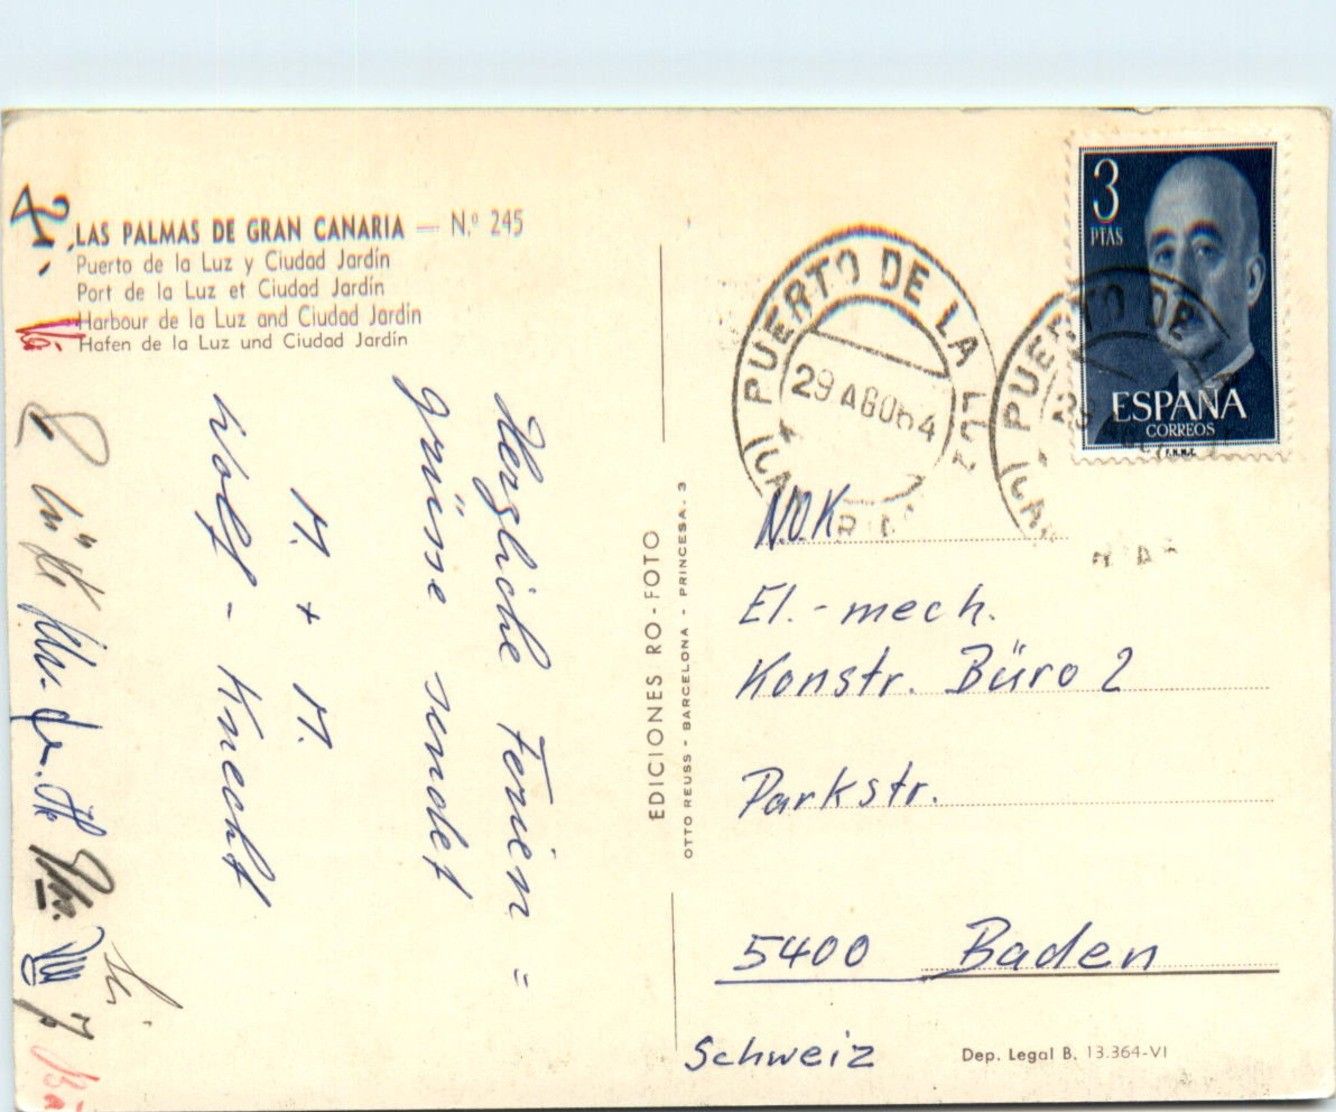 LAS PALMAS DE GRAN CANARIA — N.º 245
Puerto de la Luz y Ciudad Jardín
Port de la Luz et Ciudad Jardín
Harbour de la Luz and Ciudad Jardín
Hafen de la Luz und Ciudad Jardín
Herzliche Ferien =
grüsse sendet
M. + M.
Wolf - Knecht
EDICIONES RO-FOTO
OTTO REUSS - BARCELONA - PRINCESA. 3
PUERTO DE LA LUZ
29 AGO 64
3
PTAS
ESPAÑA
CORREOS
F.N.M.T.
PUERTO DE LA
N.O.K
El.-mech.
Konstr. Büro 2
Parkstr.
5400 Baden
Schweiz
Dep. Legal B. 13.364-VI